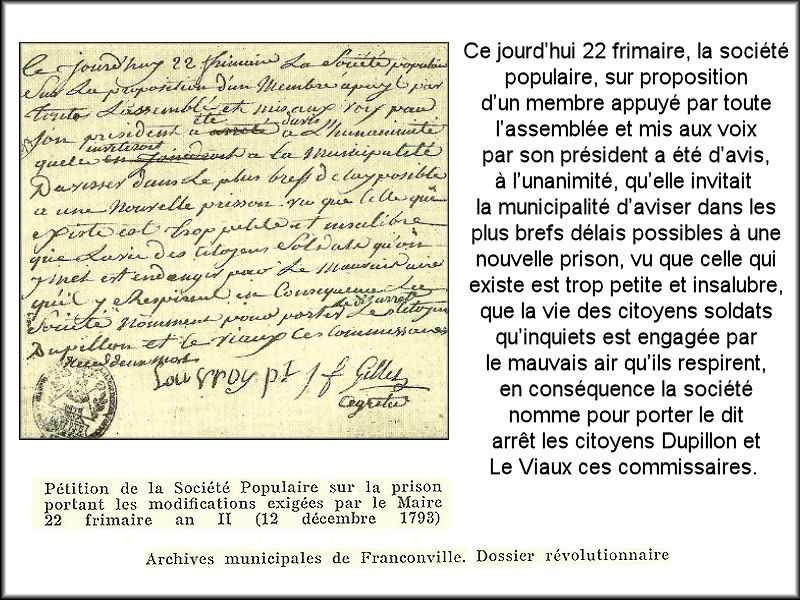 Ce jourd'huy 22 frimaire La Société populaire
Sur La proposition d'un Membre apuyé par
toute L'assemblé et mis aux voix par
été d'avis
Son president a arreté a L'hunanimité
inviteroit
quelle a la Municipalité
Davisser dans Le plus bref delay posible
a une Nouvelle prison vu que celle qui
existe est trop petite et insalibre
que La vie des citoyens Soldats qu'on
y met est endangé par Le Mauvais air
qu'il y Respirent en Consequence La
Société Nomment pour porter Le Citoyen
Dupillon et le viaux ces Commissaires
Gillet
Ce jourd'hui 22 frimaire, la société
populaire, sur proposition
d'un membre appuyé par toute
l'assemblée et mis aux voix
par son président a été d'avis,
à l'unanimité, qu'elle invitait
la municipalité d'aviser dans les
plus brefs délais possibles à une
nouvelle prison, vu que celle qui
existe est trop petite et insalubre,
que la vie des citoyens soldats
qu'inquiets est engagée par
le mauvais air qu'ils respirent,
en conséquence la société
nomme pour porter le dit
arrêt les citoyens Dupillon et
Le Viaux ces commissaires.
Pétition de la Société Populaire sur la prison
portant les modifications exigées par le Maire
22 frimaire an II (12 décembre 1793)
Archives municipales de Franconville. Dossier révolutionnaire